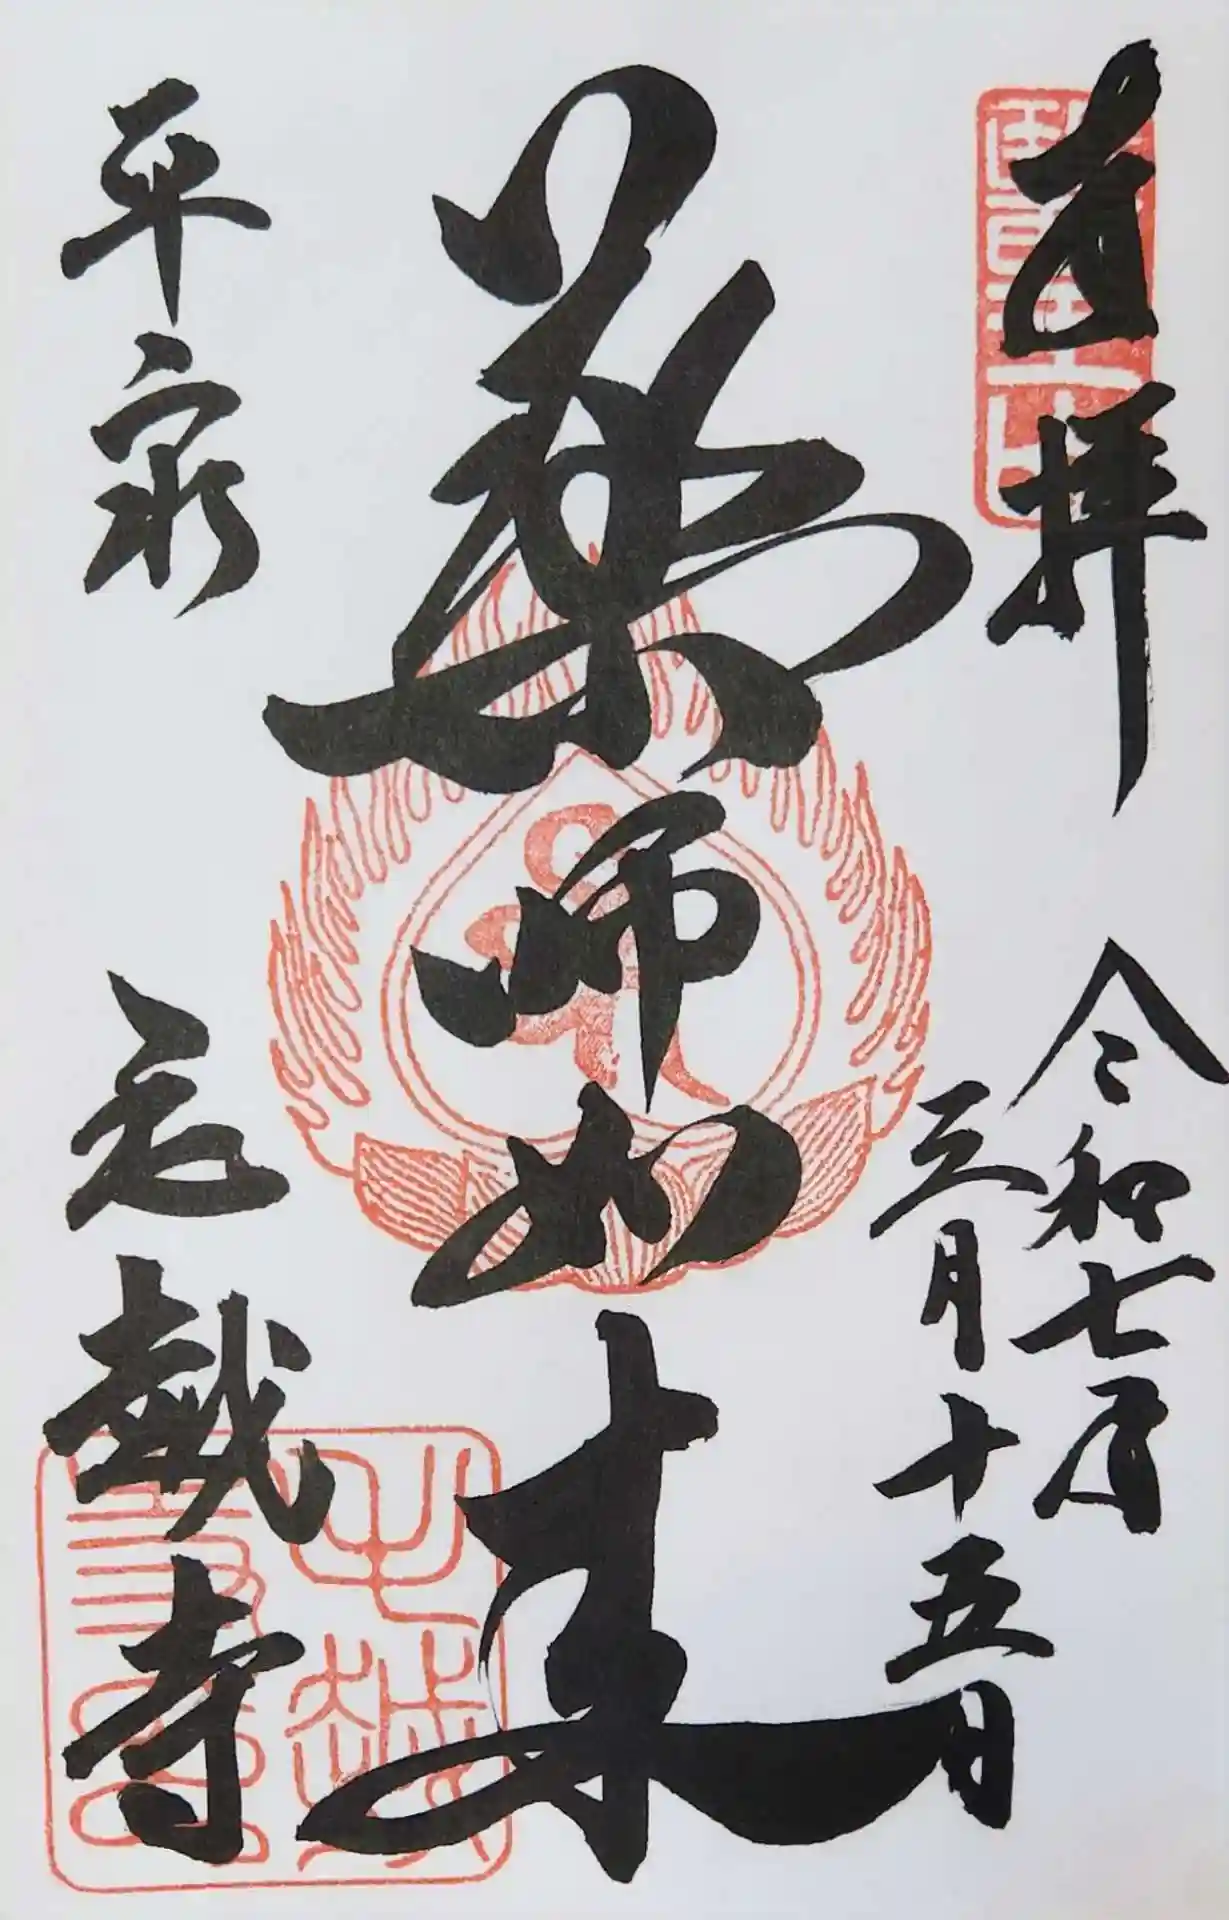 奉拝
令和七年
三月十五日
薬師如来
平泉
毛越寺